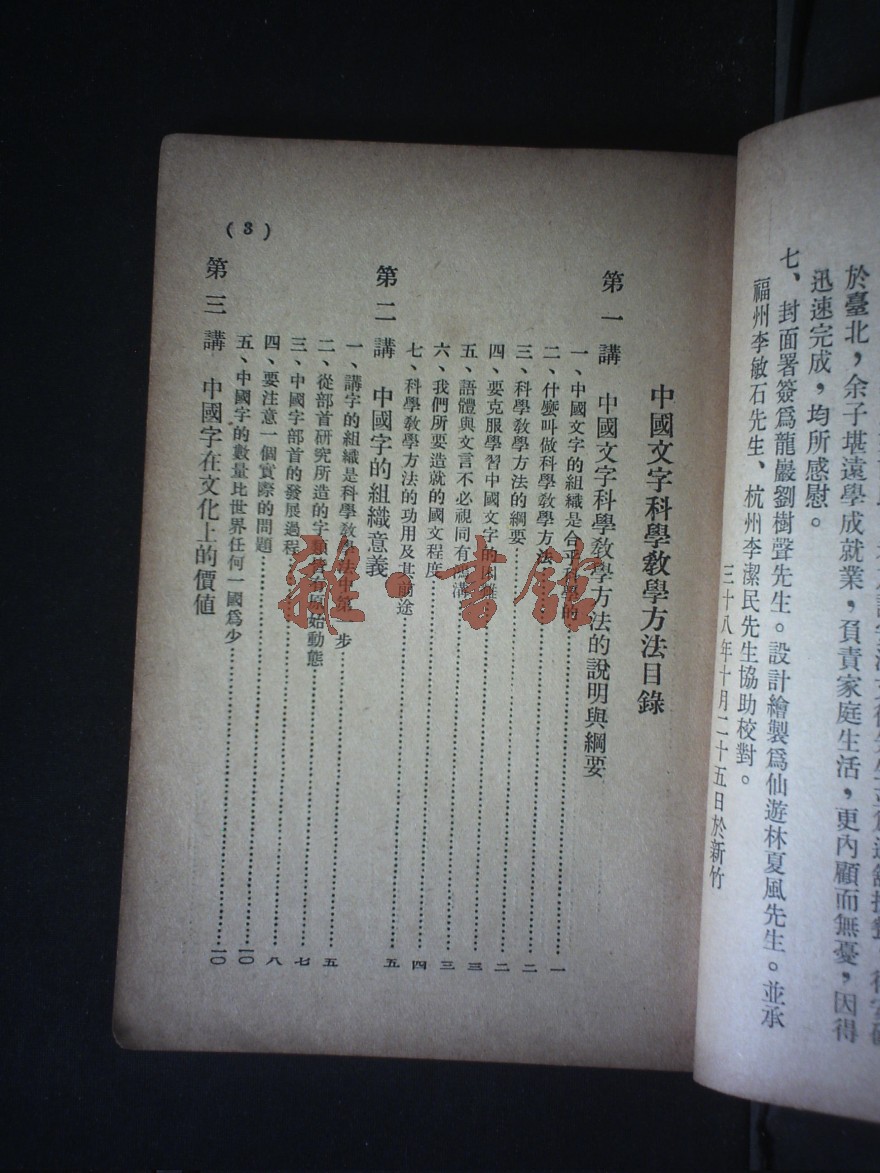 於臺北，余子堪遠學成就業，負責家庭生活，更內顧而無憂，因得
迅速完成，均所感慰。
七、封面署簽爲龍巖劉樹聲先生。設計繪製爲仙遊林夏風先生。並承
福州李敏石先生、杭州李潔民先生協助校對。
三十八年十月二十五日於新竹
中國文字科學敎學方法目錄
第一講 中國文字科學敎學方法的說明與綱要
一、中國文字的組織是合乎科學的 一
二、什麼叫做科學敎學方法 二
三、科學敎學方法的綱要 二
四、要克服學習中國文字的困難 三
五、語體與文言不必視同有鴻溝 三
六、我們所要造就的國文程度 四
七、科學敎學方法的功用及其前途 五
第二講 中國字的組織意義
一、講字的組織是科學敎學法中第一步 五
二、從部首研究所造的字類皆有原始動態 七
三、中國字部首的發展過程 八
四、要注意一個實際的問題 一〇
五、中國字的數量比世界任何一國爲少 一〇
第三講 中國字在文化上的價値
(3)
雜·書館